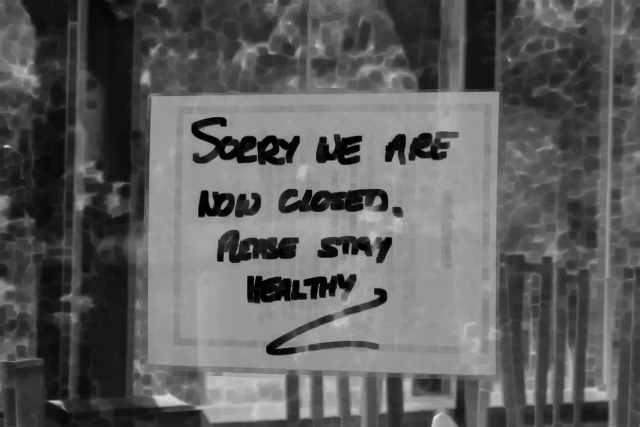 SORRY WE ARE
NOW CLOSED.
PLEASE STAY
HEALTHY